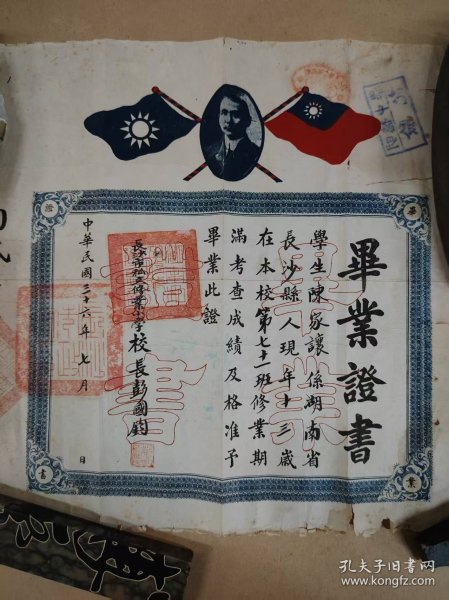 畢業證書
學生陳家讓係湖南省
長沙縣人現年十三歲
在本校第七十一班修業期
滿考查成績及格准予
畢業此證
長沙市私立修業小學校長彭國鈞
中華民國三十六年七月 日
畢
業
證
書
孔夫子旧书网
www.kongfz.com